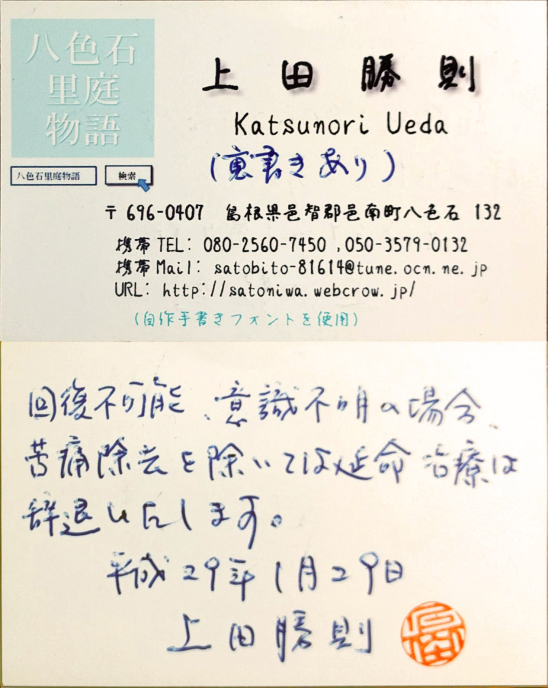 八色石
里庭
物語
八色石里庭物語 検索
上田勝則
Katsunori Ueda
(裏書きあり)
〒696-0407 島根県邑智郡邑南町八色石 132
携帯TEL: 080-2560-7450 ,050-3579-0132
携帯Mail: satobito-81614@tune.ocn.ne.jp
URL: http://satoniwa.webcrow.jp/
(自作手書きフォントを使用)
回復不可能、意識不明の場合、
苦痛除去を除いては延命治療は
辞退いたします。
平成29年1月29日
上田勝則